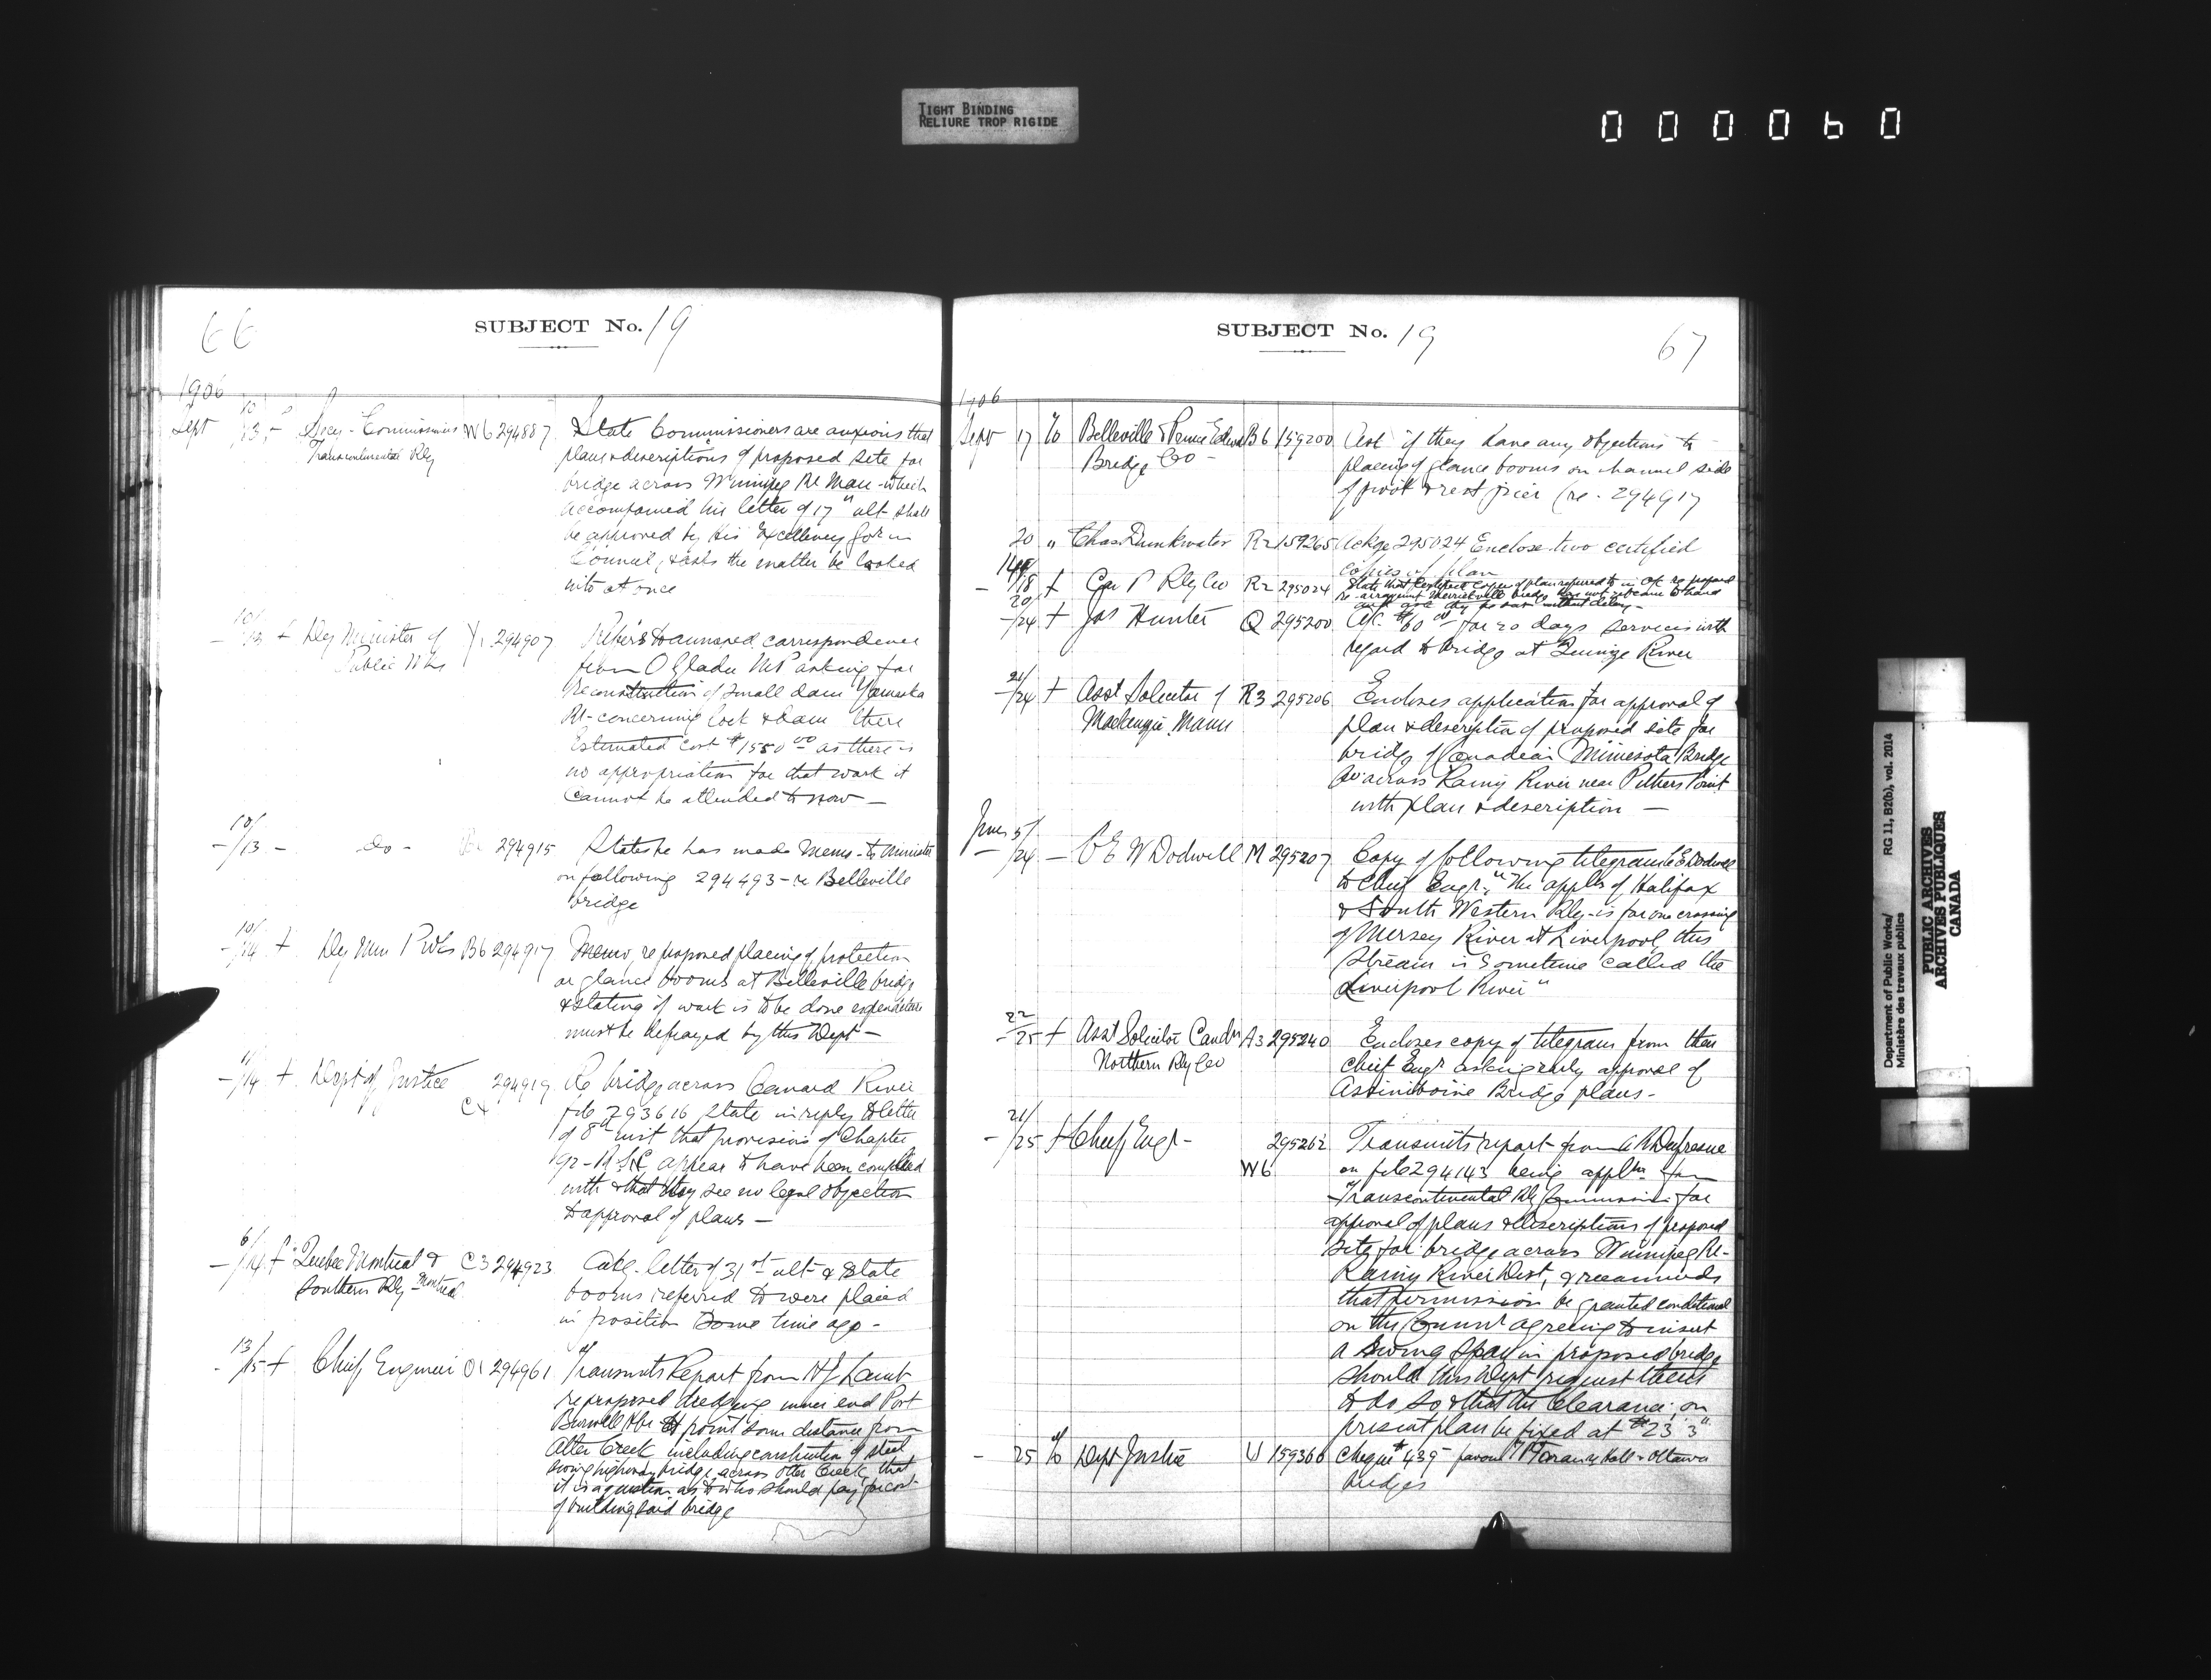 TIGHT BINDING
RELIURE TROP RIGIDE
000060
66
SUBJECT No. 19
1906
Sept 10/13 - Secy - Commissioners W6 294887 State Commissioners are anxious that
Transcontinental Rly plans & descriptions of proposed site for
bridge across Winnipeg Rr Man - which
accompanied his letter of 17" ult shall
be approved by His Excellency Gov in
Council, & asks the matter be looked
into at once
10/13 + Dy Minister of 294907 Refers to annexed correspondence
Public Wks from O Gladu MP asking for
reconstruction of small dam Yamaska
Rr - concerning lock & dam there
Estimated cost $1550.00 as there is
no appropriation for that work it
cannot be attended to now -
10/13 - do - 294915 States he has made memo - to Minister
on following 294493 - re Belleville
bridge
10/14 + Dy Min P Wks B6 294917 Memo, re proposed placing of protection
or glance booms at Belleville bridge
& stating if work is to be done expenditure
must be defrayed by this Dept -
11/14 + Dept of Justice 294919 Re bridge across Canard River
file 293616 State in reply to letter
of 8th inst that provisions of Chapter
92 - R.S.C. appear to have been complied
with & that they see no legal objection
to approval of plans -
6/14 + Quebec Montreal & C3 294923 Ackg. letter of 31st ult & State
Southern Rly - Montreal booms referred to were placed
in position some time ago -
13/15 + Chief Engineer O1 294961 Transmits Report from H J Lamb
re proposed dredging inner end Port
Burwell Hbr to point some distance from
Otter Creek including construction of steel
swing highway bridge across Otter Creek, that
it is a question as to who should pay for cost
of building said bridge
SUBJECT No. 19
67
1906
Sept 17 To Belleville & Prince Edward B6 159200 Ask if they have any objections to
Bridge Co - placing of glance booms on channel side
of pivot & rest pier (re - 294917
20 " Chas Drinkwater R2 159265 Ackge 295024 Enclose two certified
copies of plan
14/18 + Can P Rly Co R2 295024 State that Certified Copies of plan referred to in O/C re proposed
re-arrangement Merrickville bridge have not yet come to hand
20/24 + Jas Hunter Q 295200 A/c $60.00 for 20 days services with
regard to bridge at Quinze River
21/24 + Asst Solicitor of R3 295206 Encloses application for approval of
Mackenzie Mann plan & description of proposed site for
bridge of Canadian Minnesota Bridge
Co across Rainy River near Pithers Point
with plan & description -
5/24 - C E W Dodwell M 295207 Copy of following telegram C E Dodwell
to Chief Engr. "The appln of Halifax
& South Western Rly - is for one crossing
of Mersey River at Liverpool, this
stream is sometime called the
Liverpool River"
22/25 + Asst Solicitor Canadn A3 295240 Encloses copy of telegram from their
Northern Rly Co Chief Engr asking early approval of
Assiniboine Bridge plans -
21/25 + Chief Engr - 295262 Transmits report from A R Dufresne
W6 on file 294143 being appltn from
Transcontinental Rly Commission for
approval of plans & descriptions of proposed
site for bridge across Winnipeg Rr -
Rainy River Dist, & recommends
that permission be granted conditional
on the Commrs agreeing to insert
a swing span in proposed bridge
should this Dept request them
to do so & that the clearance on
present plan be fixed at 23' 3"
- 25 To Dept Justice U 159366 Cheque $439 - favour Hall - Ottawa
bridges
Department of Public Works/
Ministère des travaux publics
RG 11, B2(b), vol. 2014
PUBLIC ARCHIVES
ARCHIVES PUBLIQUES
CANADA